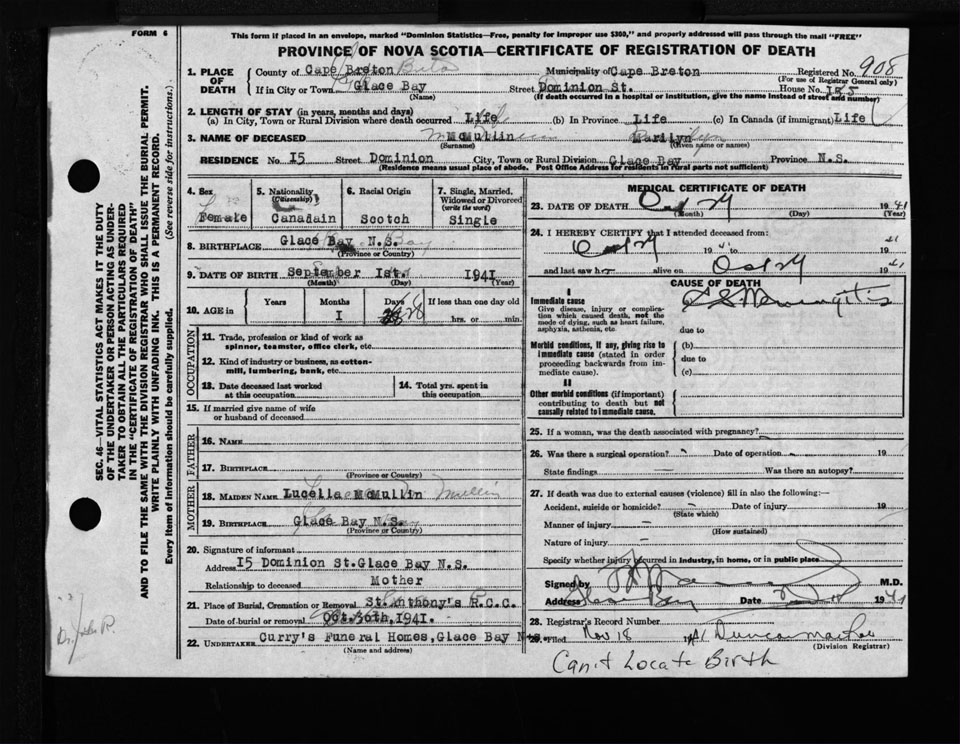 FORM 6
This form if placed in an envelope, marked "Dominion Statistics—Free, penalty for improper use $300," and properly addressed will pass through the mail "FREE"
PROVINCE OF NOVA SCOTIA—CERTIFICATE OF REGISTRATION OF DEATH
1. PLACE OF DEATH
County of Cape Breton
Municipality of Cape Breton
Registered No. 908
(For use of Registrar General only)
If in City or Town Glace Bay
(Name)
Street Dominion St.
House No. 155
(If death occurred in a hospital or institution, give the name instead of street and number)
2. LENGTH OF STAY (in years, months and days)
(a) In City, Town or Rural Division where death occurred Life
(b) In Province Life
(c) In Canada (if immigrant) Life
3. NAME OF DECEASED McMullin Marilyn
(Surname)
(Given name or names)
RESIDENCE No 15 Street Dominion City, Town or Rural Division Glace Bay Province N.S.
(Residence means usual place of abode. Post Office Address for residents in Rural parts not sufficient)
4. Sex
Female
5. Nationality
(Citizenship)
Canadain
6. Racial Origin
Scotch
7. Single, Married, Widowed or Divorced
(write the word)
Single
8. BIRTHPLACE Glace Bay N.S.
(Province or Country)
9. DATE OF BIRTH September 1st. 1941
(Month) (Day) (Year)
10. AGE in
Years
Months
I
Days
28
If less than one day old
hrs. or min.
OCCUPATION
11. Trade, profession or kind of work as spinner, teamster, office clerk, etc.
12. Kind of industry or business, as cotton-mill, lumbering, bank, etc.
13. Date deceased last worked at this occupation
14. Total yrs. spent in this occupation
15. If married give name of wife or husband of deceased
FATHER
16. NAME
17. BIRTHPLACE
(Province or Country)
MOTHER
18. MAIDEN NAME Lucella McMullin
19. BIRTHPLACE Glace Bay N.S.
(Province or Country)
20. Signature of informant
Address 15 Dominion St.Glace Bay N.S.
Relationship to deceased Mother
21. Place of Burial, Cremation or Removal St.Anthony's R.C.C.
Date of burial or removal Oct.30th,1941.
22. UNDERTAKER Curry's Funeral Homes,Glace Bay N.S.
(Name and address)
MEDICAL CERTIFICATE OF DEATH
23. DATE OF DEATH Oct 29 1941
(Month) (Day) (Year)
24. I HEREBY CERTIFY that I attended deceased from:
Oct 29 1941 to 1941
and last saw her alive on Oct 29 1941
CAUSE OF DEATH
I
Immediate cause
Give disease, injury or complication which caused death, not the mode of dying, such as heart failure, asphyxia, asthenia, etc.
Meningitis
due to
Morbid conditions, if any, giving rise to immediate cause (stated in order proceeding backwards from immediate cause).
(b)
due to
(c)
II
Other morbid conditions (if important) contributing to death but not causally related to immediate cause.
25. If a woman, was the death associated with pregnancy?
26. Was there a surgical operation? Date of operation 19
State findings Was there an autopsy?
27. If death was due to external causes (violence) fill in also the following:—
Accident, suicide or homicide? Date of injury 19
(State which)
Manner of injury
(How sustained)
Nature of injury
Specify whether injury occurred in Industry, in home, or in public place
Signed by M.D.
Address Glace Bay Date 1941
28. Registrar's Record Number
29. Filed Nov 18 1941 Duncan MacRae
(Division Registrar)
Can't Locate Birth
SEC. 46—VITAL STATISTICS ACT MAKES IT THE DUTY
OF THE UNDERTAKER OR PERSON ACTING AS UNDER-
TAKER TO OBTAIN ALL THE PARTICULARS REQUIRED
IN THE "CERTIFICATE OF REGISTRATION OF DEATH"
AND TO FILE THE SAME WITH THE DIVISION REGISTRAR WHO SHALL ISSUE THE BURIAL PERMIT.
WRITE PLAINLY WITH UNFADING INK. THIS IS A PERMANENT RECORD.
Every item of information should be carefully supplied. (See reverse side for instructions.)